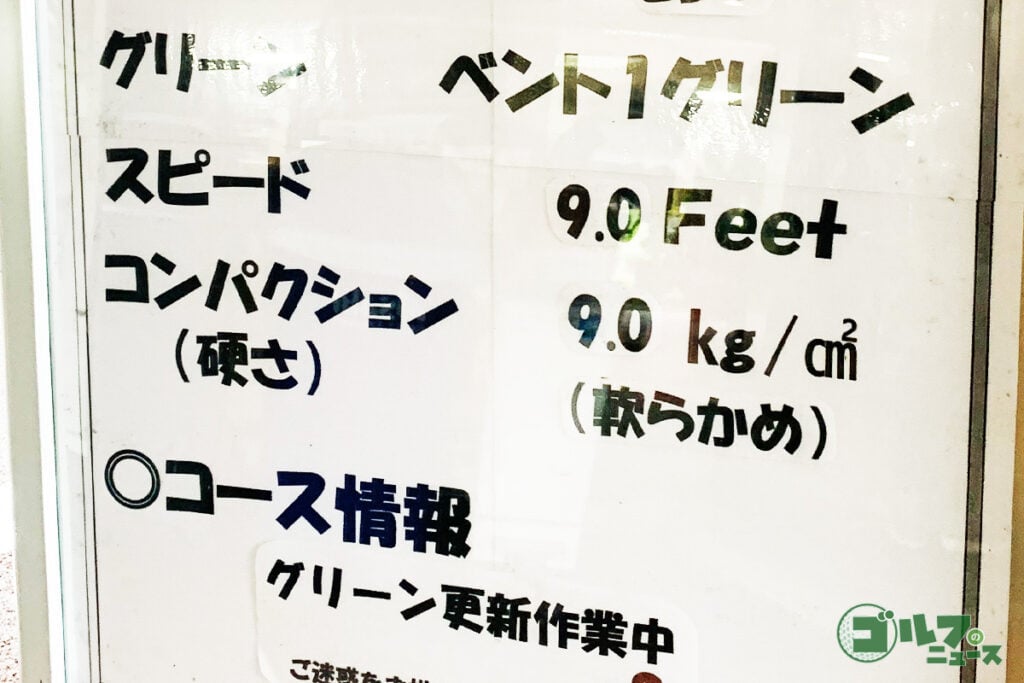 グリーン ベント1グリーン
スピード 9.0 Feet
コンパクション 9.0 kg/㎠
(硬さ) (軟らかめ)
◎コース情報
グリーン更新作業中
ご迷惑を
ゴルフの
ニュース